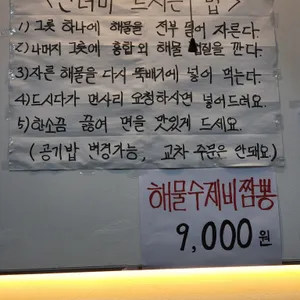 드시는 법>
1) 그릇 하나에 해물을 전부 덜어 자른다.
2) 나머지 그릇에 홍합 외 해물 껍질을 깐다.
3) 자른 해물을 다시 뚝배기에 넣어 먹는다.
4) 드시다가 면사리 요청하시면 넣어드려요.
5) 한소끔 끓여 면을 맛있게 드세요.
(공기밥 변경가능, 교차 주문은 안돼요)
해물수제비짬뽕
9,000원